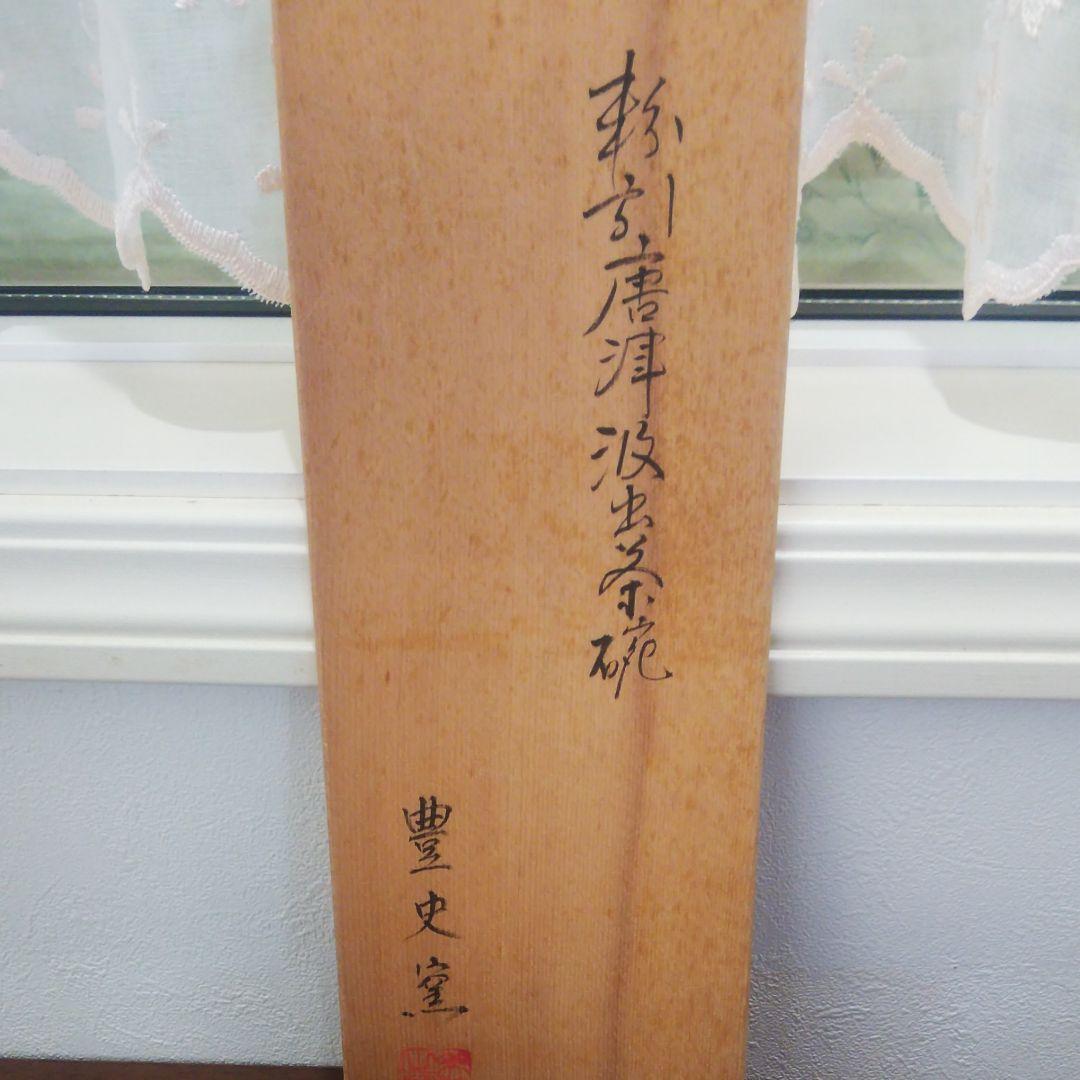 粉引唐津汲出茶碗
豊史窯